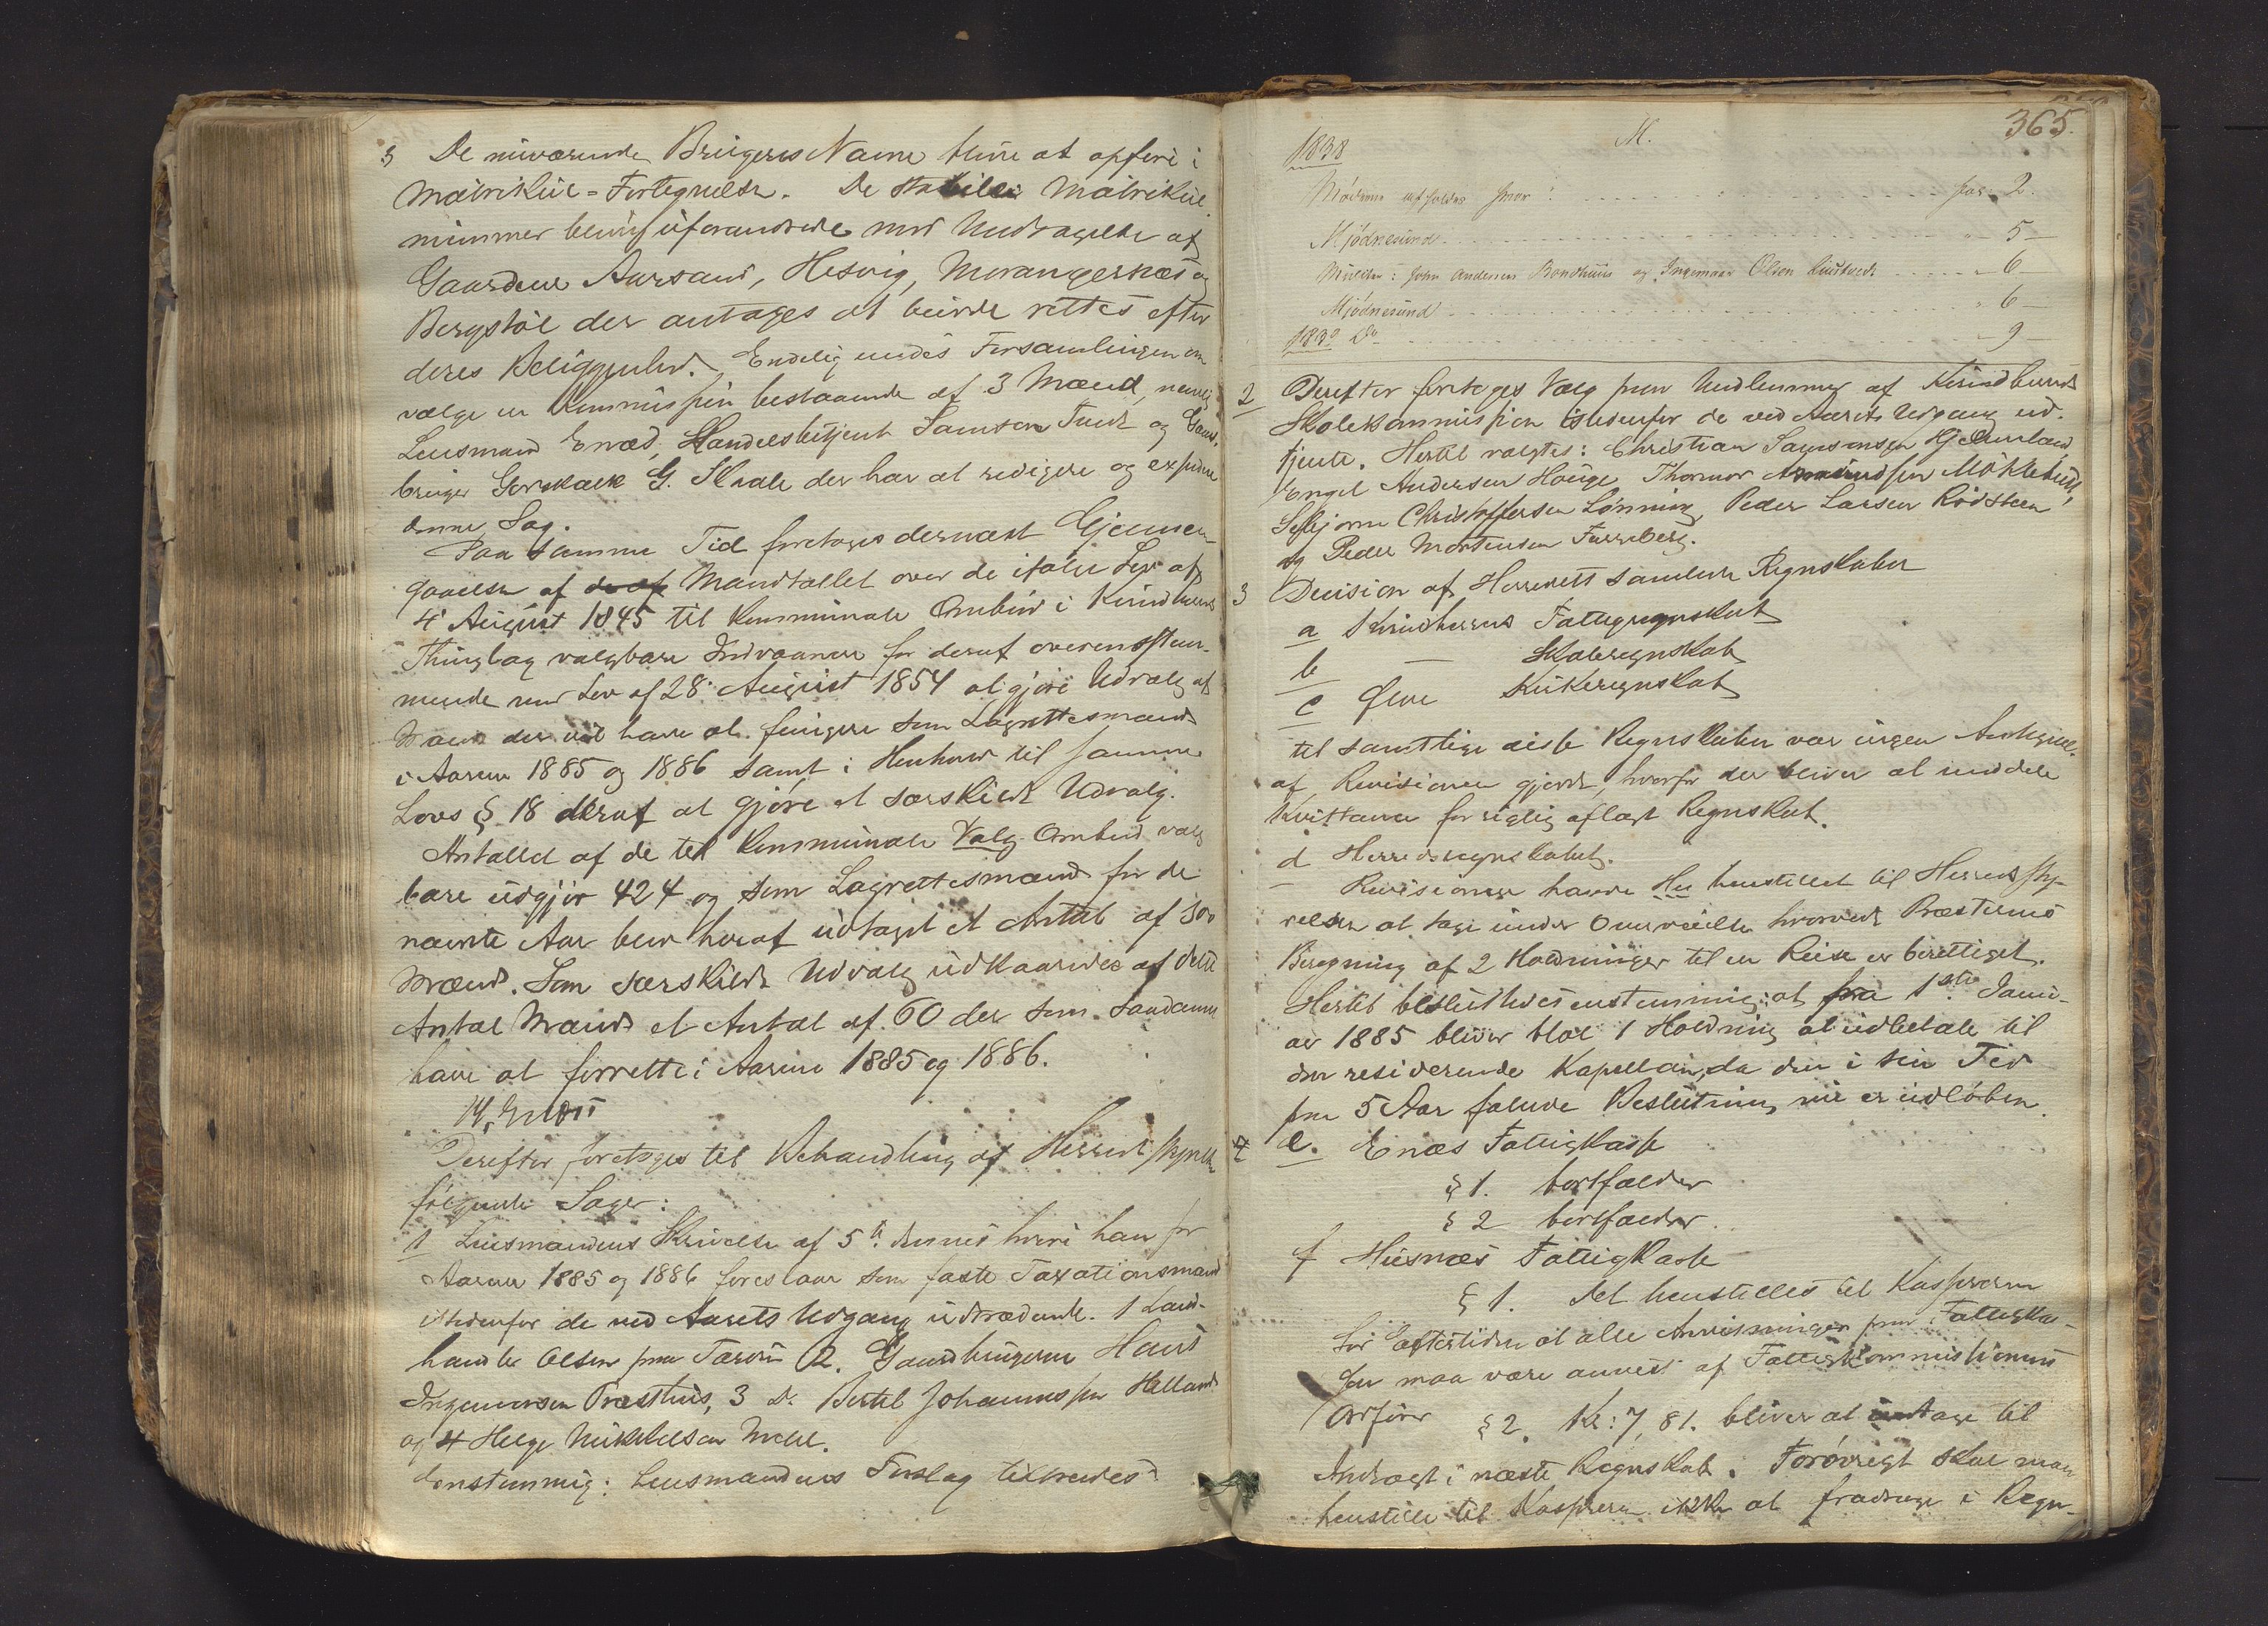 3 De nuværende Brugeres Navne blive at opføre i
Matrikul=Fortegnelsen. De stabile Matrikul
nummer bliver uforandrede med Undtagelse af
Gaardene Aarsand, Hesvig, Morangernæs og
Bergstøl der antages at burde rettes efter
deres Beliggenhed. Endelig undes Forsamlingen om
vælge en Kommission bestaaende af 3 Mænd, nemlig
Lensmand Enæs, Handelsbetjent Samson Tunt og Gaard-
bruger Gorskalk G. Skaale der har at redigere og expedere
denne Sag.
Paa samme Tid foretages dernæst Gjennem-
gaaelsen af Mandtallet over de ifølge Lov af
4 August 1845 til Kommunale Ombud i Kvindherreds
Thinglag valgbare Indvaanere for deraf overensstem-
mende med Lov af 28 August 1854 at gjøre Udvalg af
Mænd der vil have at fungere som Lagrettesmænd
i Aarene 1885 og 1886 samt i Henhold til samme
Lovs § 18 deraf at gjøre et særskildt Udvalg.
Antallet af de til Kommunale Valg-Ombud valg
bare udgjør 424 og som Lagrettesmænd for de
nævnte Aar blev heraf udtaget et Antal af 300
Mænd. Som særskildt Udvalg udkaaredes af dette
Antal Mænd et Antal af 60 der som saadanne
have at forrette i Aarene 1885 og 1886.
Derefter foretoges til Behandling af Herredsstyrelsen
følgende Sager:
1 Lensmandens Skrivelse af 5te dennes hvori han for
Aarene 1885 og 1886 foreslaar som faste Taxationsmænd
istedenfor de ved Aarets Udgang udtrædende. 1 Land-
handler Olsen paa 2. Gaardbrugerne Hans
Ingemorsen Præsthus, 3 Do Bertel Johannessen Helland
og 4 Helge Mikkelsen Mehl.
Enstemmig: Lensmandens Forslag tiltrædes.
365.
M.
1838
Mødrene for 2.
Mjödnesund 5 —
Mulcter: John Andersen Bondhuus og Ingemaar Olsen 6 —
Mjödnesund 6 —
1839 Do 9 —
2 Derefter foretoges Valg paa Medlemmer af Kvindherreds
Skolekommission istedenfor de ved Aarets Udgang ud-
tjente. Hertil valgtes: Christian Samsonsen Hjelmeland
Engel Andersen Hauge, Thormor Amundsen Møklebust,
Sebjørn Christoffersen Lønning, Peder Larsen Rødsteen
og Peder Mortensen Furreberg.
3 Decision af Herredets samtlige Regnskaber
a Kvindherreds Fattigregnskab
b — Skoleregnskab
c Ølve Kirkeregnskab
til samtlige disse Regnskaber var ingen Antegnelse
af Revisionen gjort, hvorfor der bliver at meddele
Kvittance for rigtig aflagt Regnskab.
d Herredsregnskabet.
Revisionen havde Her henstillet til Herredssty-
relsen at tage under Overveielse hvorvidt Præsternes
Beregning af 2 Holdninger til en Reise er berettiget.
Hertil besluttedes enstemmig: at fra 1ste Janu-
ar 1885 bliver blot 1 Holdning at udbetale til
den residerende Kapellan, da den i sin Tid
paa 5 Aar fattede Beslutning nu er udløben.
4 e. Enæs Fattigkasse
§ 1. bortfalder
§ 2 bortfalder.
f Husnæs Fattigkasse
§ 1. Det henstilles til Kassereren
for Eftertiden at alle Anvisninger paa Fattigkas-
sen maa være anvist af Fattigkommissionens
Ordfører § 2. Kr: 7,81. bliver at indtage til
Indtægt i næste Regnskab. Forøvrigt skal man
henstille til Kassereren ikke at fradrage i Regn-